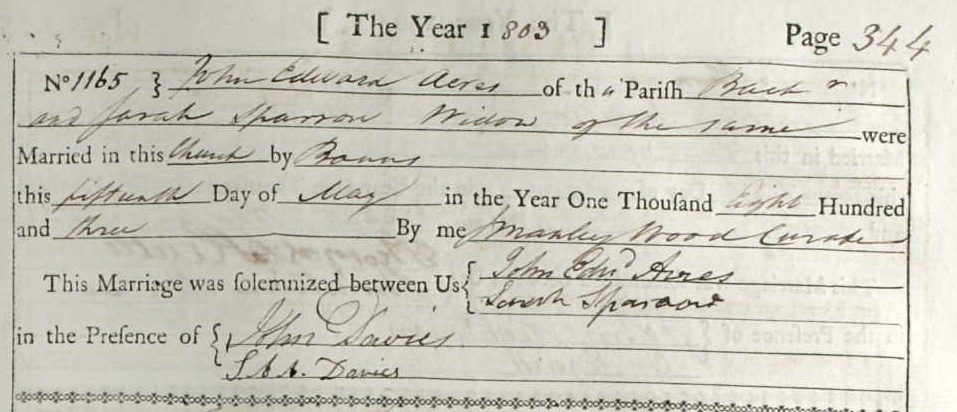 [ The Year 1803 ] Page 344
No 1165 } John Edward Acres of this Parish Bach r
and Sarah Sparrow Widow of the same were
Married in this Church by Banns
this fifteenth Day of May in the Year One Thousand Eight Hundred
and three By me Manley Wood Curate
This Marriage was solemnized between Us { John Edwd Acres
Sarah Sparrow
in the Presence of { John Davies
Davies